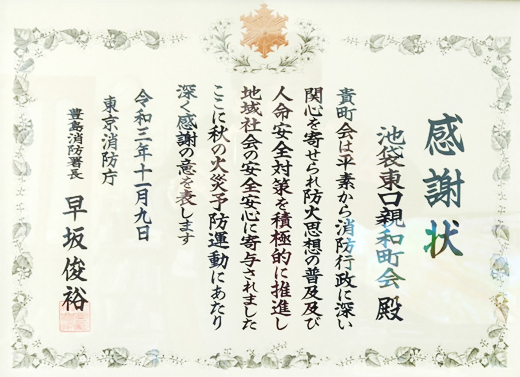 感謝状
池袋東口親和町会 殿
貴町会は平素から消防行政に深い
関心を寄せられ防火思想の普及及び
人命安全対策を積極的に推進し
地域社会の安全安心に寄与されました
ここに秋の火災予防運動にあたり
深く感謝の意を表します
令和三年十一月九日
東京消防庁
豊島消防署長 早坂俊裕